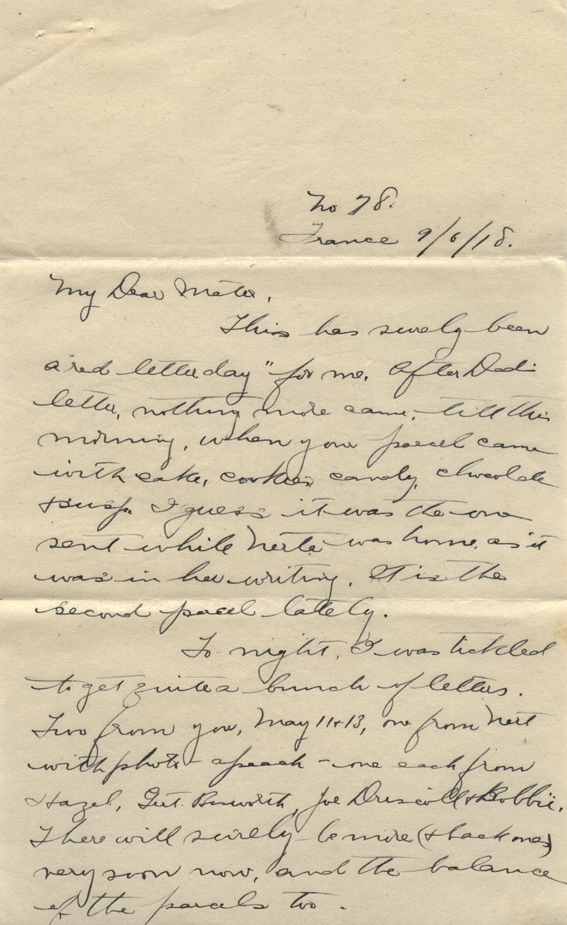 No 78.
France 9/6/18.
My Dear Mater,
This has surely been
a "red letter day" for me. After Dad's
letter, nothing more came, till this
morning, when your parcel came
with cake, cookies, candy, chocolate
I guess it was the one
sent while Nerta was home, as it
was in her writing. It is the
second parcel lately.
To night, I was tickled
to get quite a bunch of letters.
Two from you, May 11+13, one from Nert
with photo - - one each from
Hazel, Gert. Joe Driscoll + Bobbie.
There will surely be more (+ back ones)
very soon now, and the balance
of the parcels too.